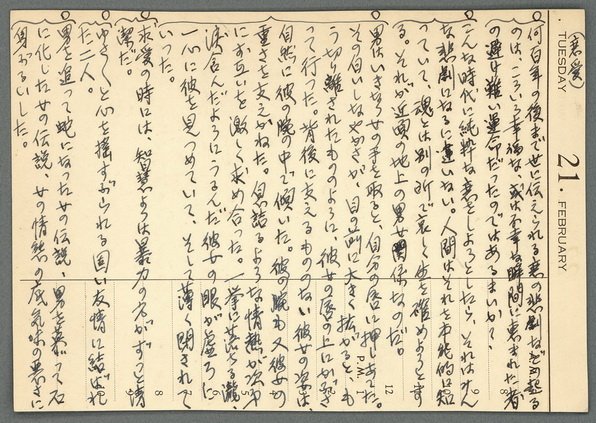 (恋愛)
何百年の後まで世に伝えられる恋の悲劇なぞの起る
のは、こういう幸福な、或は不幸な瞬間に恵まれた者
の避け難い運命だったのではあるまいか?
こんな時代に純粋な恋をしようとしたら、それはみん
な悲劇になるに違いない。人間はそれを本能的に知
っていて、魂とは別の所で哀しく生を確めようとす
る。それが近頃の地上の男女関係なのだ。
男はいきなり女の手を取ると、自分の唇に押しあてた。
その白いしなやかさが、目の前に大きく拡がると、も
う切り離されたもののように彼女の唇の上にかぶさ
って行った。背後に支えるもののない彼女の姿は、
自然に彼の腕の中で傾いた。彼の腕も又彼女の
重さを支えかねた。息詰るような情熱が強かに
お互いを激しく求め合った。一挙に落ちる瀧、
溶合んだようにうるんだ彼女の眼が虚ろに
一心に彼を見つめていて、そして薄く閉されて
いった。
求愛の時には、知慧よりは暴力の方がずっと清
潔だ。
ゆさゆさと心を揺すぶられる固い友情に結ばれ
た二人。
男を追って蛇になった女の伝説、男を慕って石
に化した女の伝説、女の情熱の底気味の悪さに
身ぶるいした。
TUESDAY
21.
FEBRUARY
8
9
12
P.M.
1
5
6
8